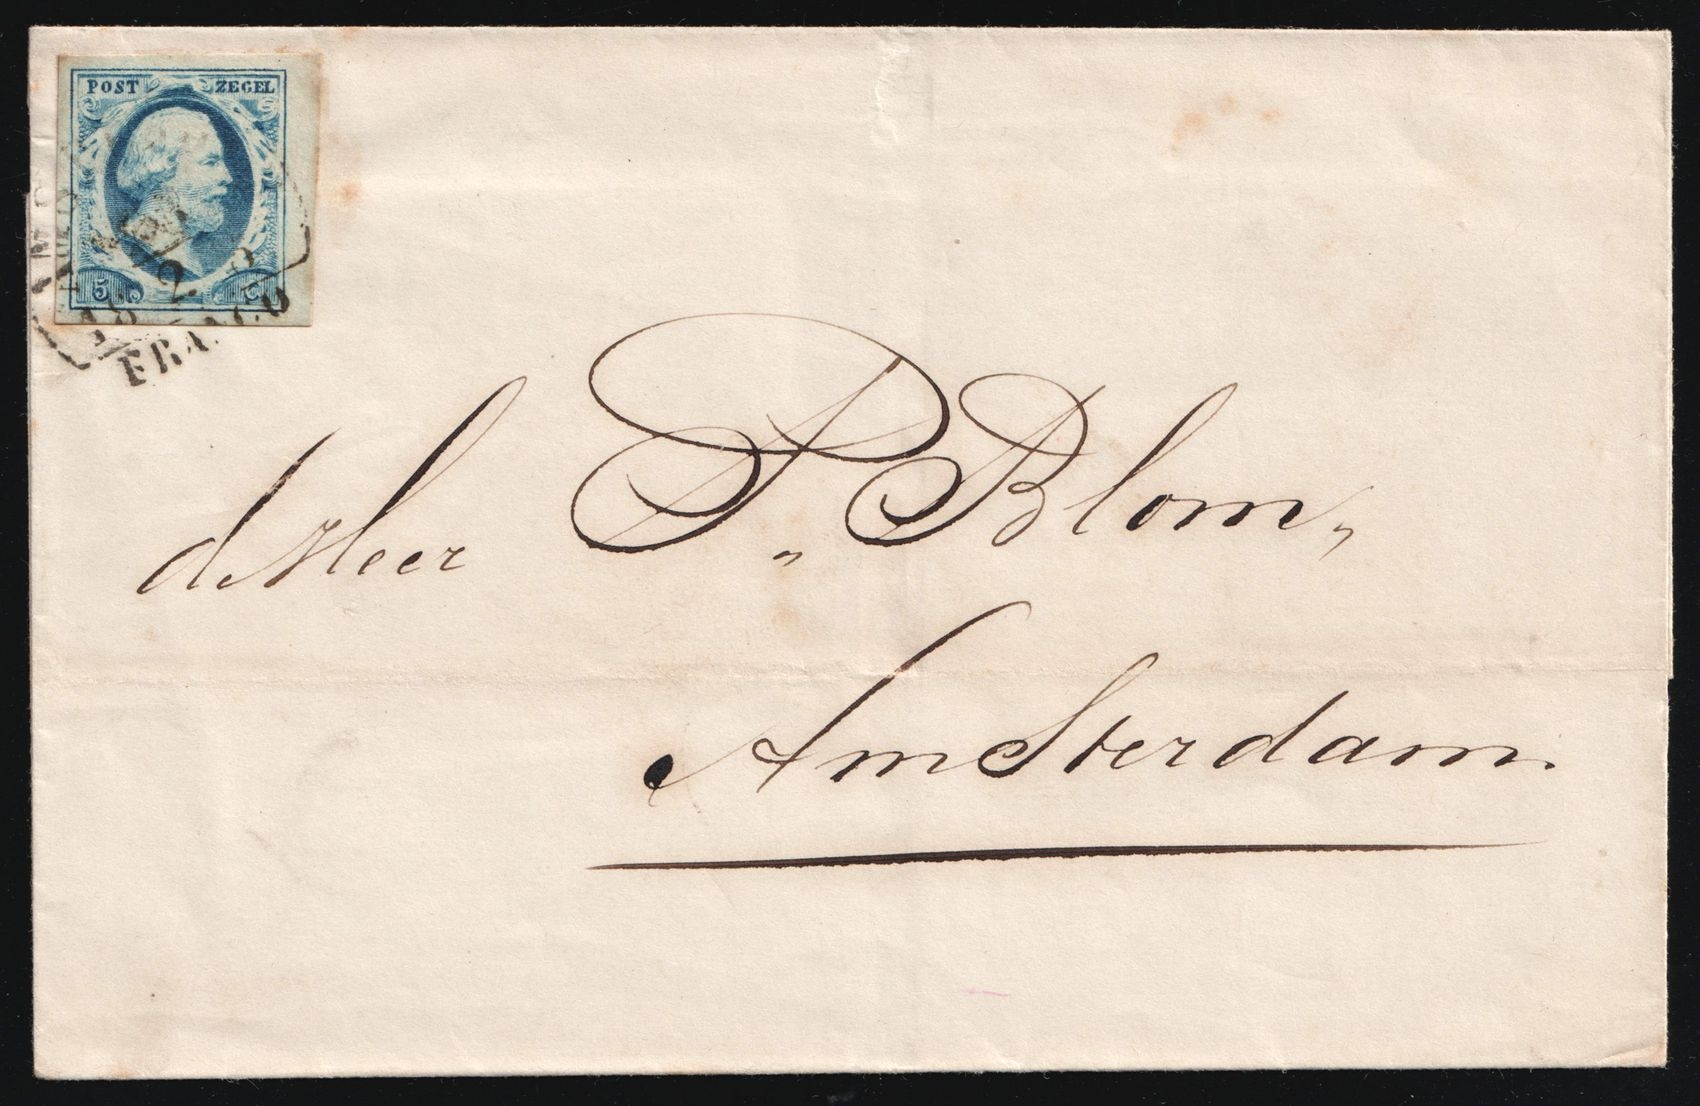 POST ZEGEL
5
2
18
FRANCO
d Heer P. Blom,
Amsterdam.